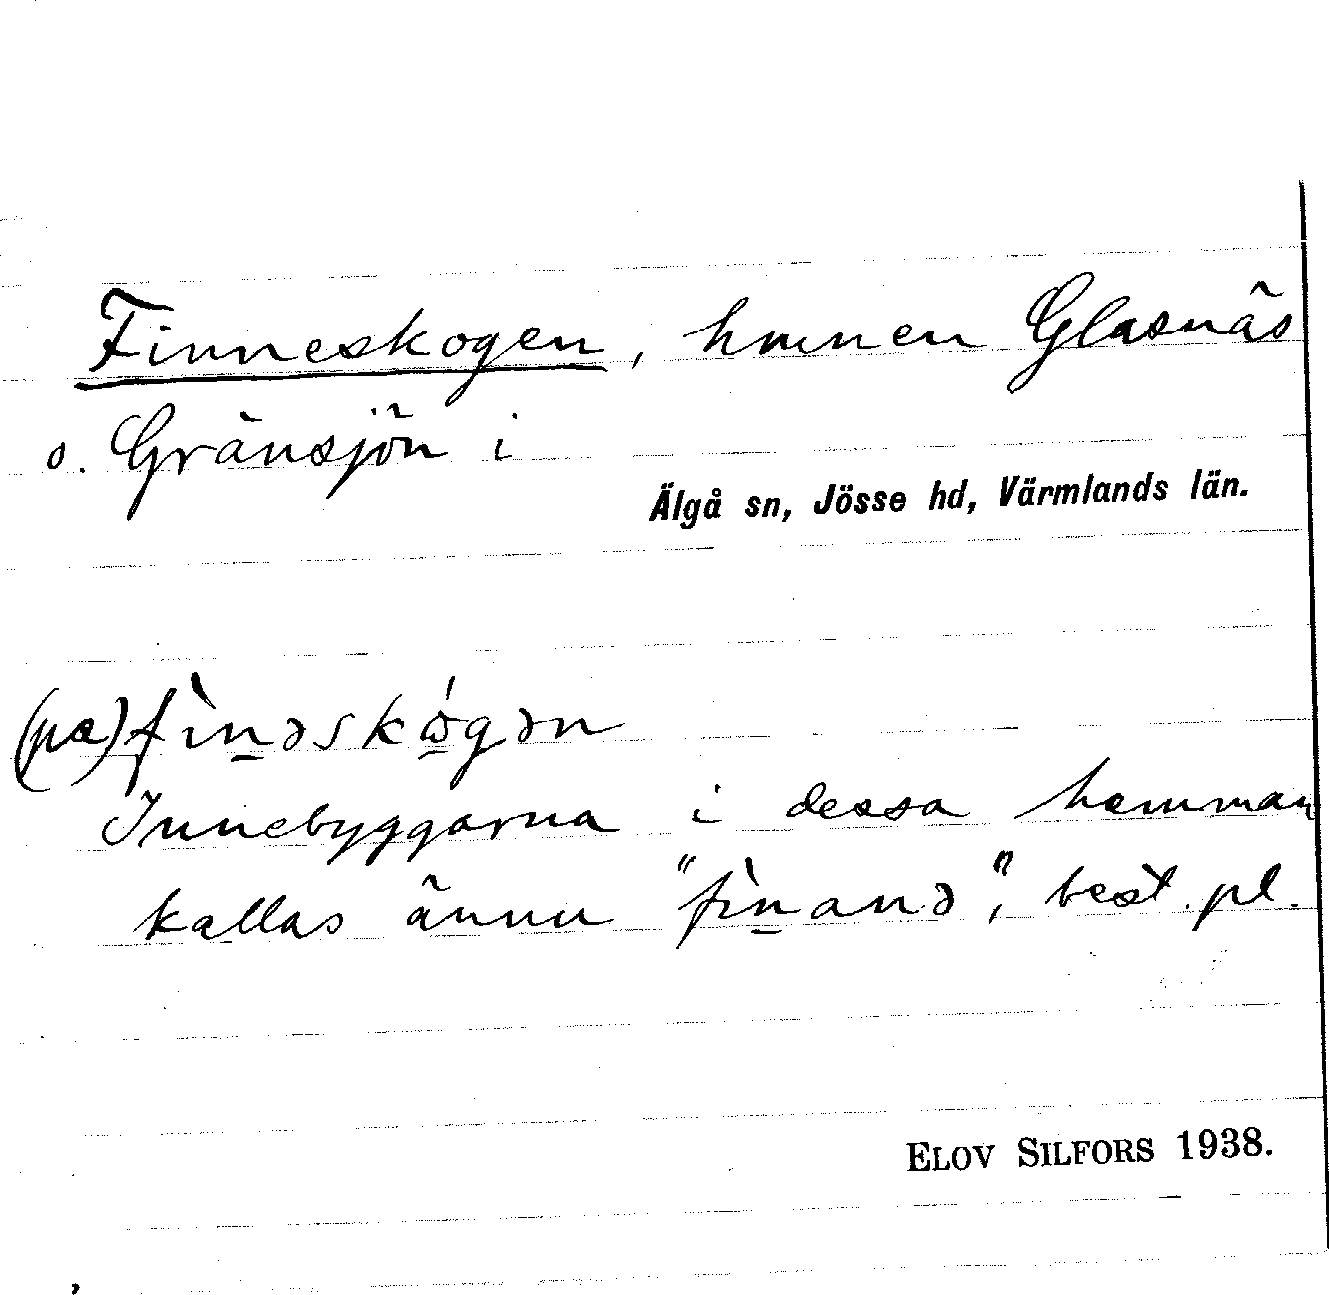 Finneskogen, hmnen Glasnäs
o. Gränsjön i
Älgå sn, Jösse hd, Värmlands län.
(pa) fìn̲əskɷ̲́gən
Innebyggarna i dessa hemman
kallas ännu "fìn̲anə", best. pl.
ELOV SILFORS 1938.